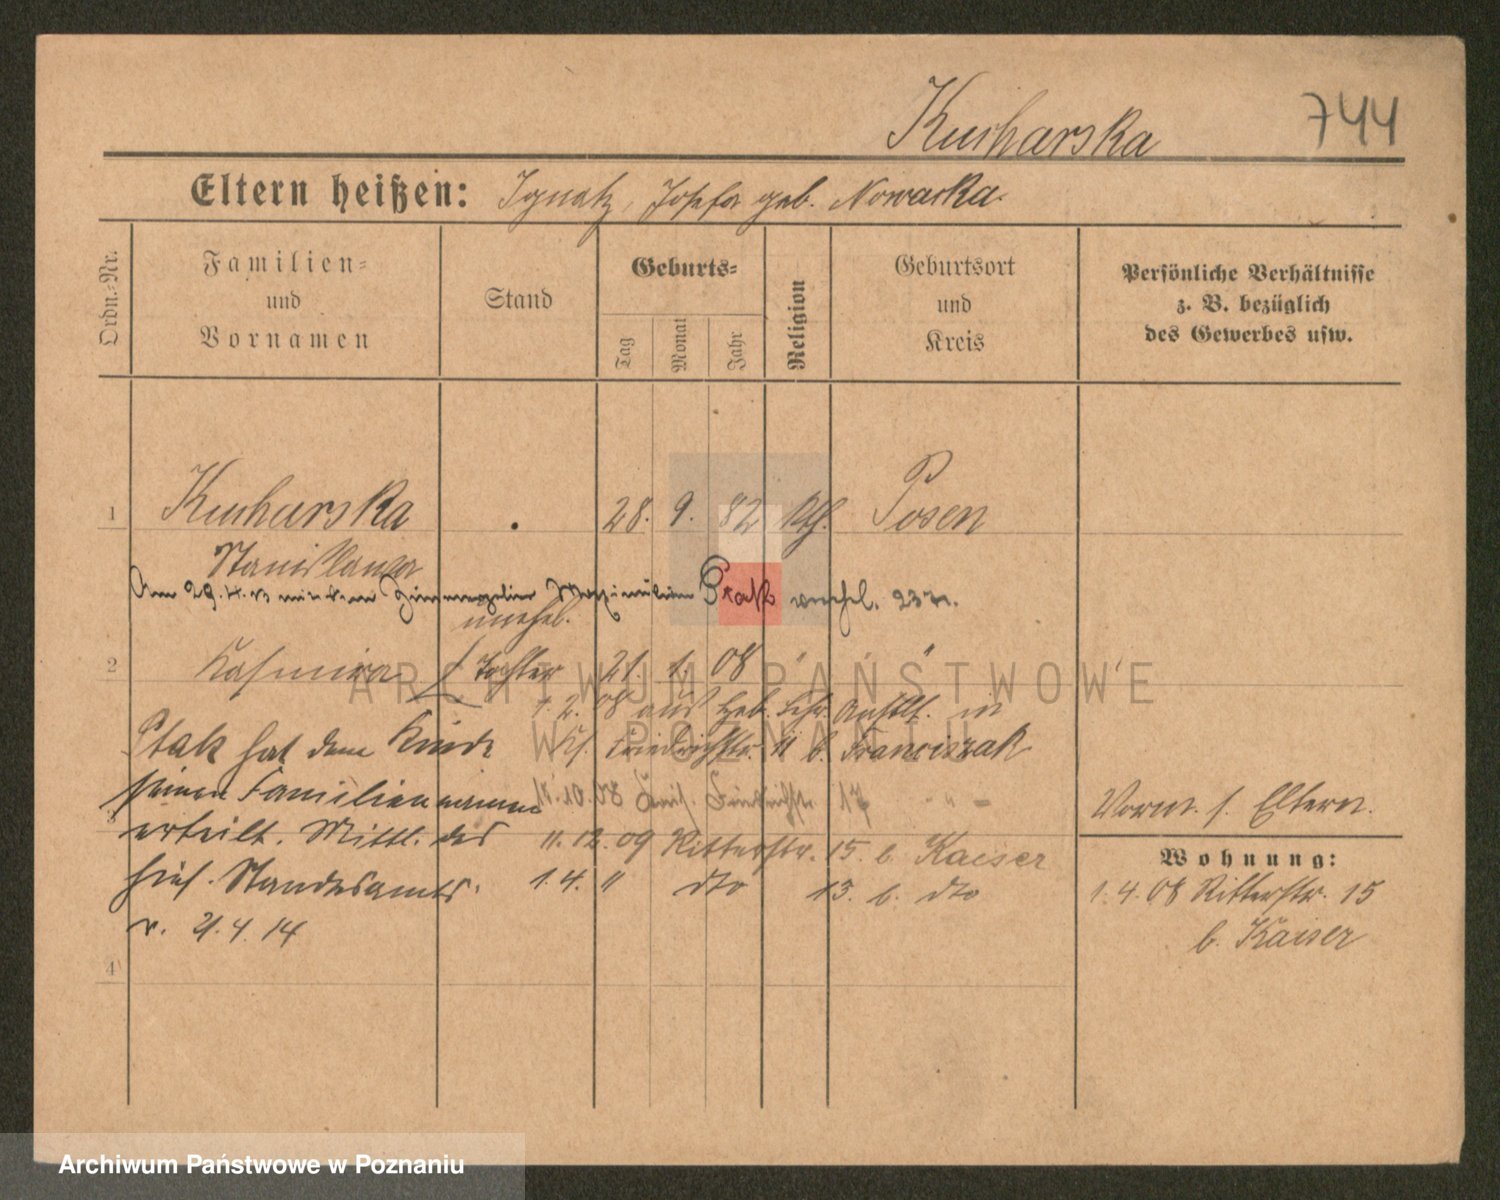 Kucharska 744
Eltern heißen: Ignatz, Josefa geb. Nowacka.
Ordn.-Nr.
Familien-
und
Vornamen
Stand
Geburts-
Tag
Monat
Jahr
Religion
Geburtsort
und
Kreis
Persönliche Verhältnisse
z. B. bezüglich
des Gewerbes usw.
1 Kucharska 28. 9. 82 Kth. Posen
Stanislawa
Am 29.4.13 mit dem Maximilian Ptak verehel.
unehel.
2 Kasimira Tochter 21. 1. 08 " "
7.2.08 aus Heb. Lehr Anstlt. in
Kl. Friedrichstr. 11 b. Franciszak
18.10.08 17 - " -
11.12.09 Ritterstr. 15. b. Kaiser
1.4. " dto 13. b. dto
Ptak hat dem Kinde
seinen Familiennamen
erteilt. Mittl. des
hies. Standesamts.
v. 21.4.14
3
4
Vorm. s. Eltern.
Wohnung:
1.4.08 Ritterstr. 15
b. Kaiser
ARCHIWUM PAŃSTWOWE
W POZNANIU
Archiwum Państwowe w Poznaniu